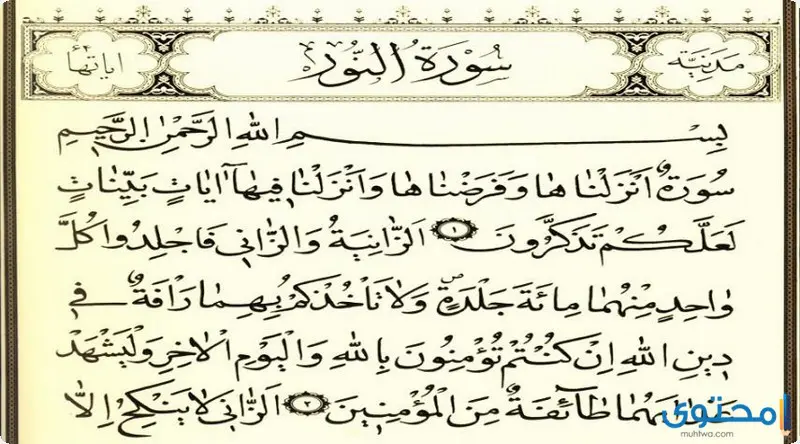 مَدَنِيَّة سُورَةُ النُّور اٰيَاتُهَا
بِسْمِ اللهِ الرَّحْمٰنِ الرَّحِيمِ
سُورَةٌ اَنْزَلْنَاهَا وَفَرَضْنَاهَا وَاَنْزَلْنَا فِيهَٓا اٰيَاتٍ بَيِّنَاتٍ
لَعَلَّكُمْ تَذَكَّرُونَ ١ اَلزَّانِيَةُ وَالزَّانِي فَاجْلِدُوا كُلَّ
وَاحِدٍ مِنْهُمَا مِائَةَ جَلْدَةٍۖ وَلَا تَأْخُذْكُمْ بِهِمَا رَأْفَةٌ فِي
دِينِ اللهِ اِنْ كُنْتُمْ تُؤْمِنُونَ بِاللهِ وَالْيَوْمِ الْاٰخِرِ وَلْيَشْهَدْ
طَٓائِفَةٌ مِنَ الْمُؤْمِنِينَ ٢ اَلزَّانِي لَا يَنْكِحُ اِلَّا
امحتوى
muhtwa.com